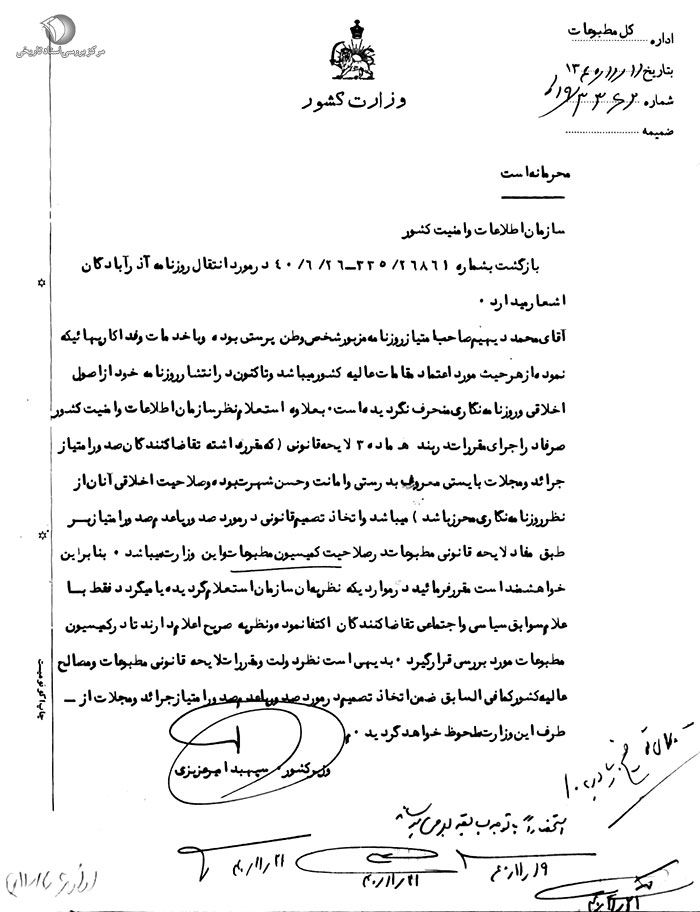 مرکز بررسی اسناد تاریخی
وزارت کشور
اداره کل مطبوعات
بتاریخ
شماره
ضمیمه
محرمانه است
سازمان اطلاعات و امنیت کشور
بازگشت بشماره ۲۶۸۶۱/۳۳۵-۴۰/۶/۲۶ در مورد انتقال روزنامه آذرآبادگان
اشعار میدارد .
آقای محمد دیهیم صاحب امتیاز روزنامه مزبور شخص وطن پرستی بوده و با خدمات و فداکاریهائیکه
نموده از هر حیث مورد اعتماد مقامات عالیه کشور میباشد و تاکنون در انتشار روزنامه خود از اصول
اخلاقی و روزنامه نگاری منحرف نگردیده است . بعلاوه استعلام نظر سازمان اطلاعات و امنیت کشور
صرفا در اجرای مقررات بند ه ماده ۳ لایحه قانونی ( که مقرر داشته تقاضا کنندگان صدور امتیاز
جرائد و مجلات بایستی معروف بدرستی و امانت و حسن شهرت بوده و صلاحیت اخلاقی آنان از
نظر روزنامه نگاری محرز باشد ) میباشد و اتخاذ تصمیم قانونی در مورد صدور یا عدم صدور امتیاز بر
طبق مفاد لایحه قانونی مطبوعات در صلاحیت کمیسیون مطبوعات این وزارت میباشد . بنابراین
خواهشمند است مقرر فرمائید در مواردیکه نظریه ان سازمان استعلام گردیده یا میگردد فقط با
علام سوابق سیاسی و اجتماعی تقاضا کنندگان اکتفا نموده و نظریه صریح اعلام دارند تا در کمیسیون
مطبوعات مورد بررسی قرار گیرد . بدیهی است نظر دولت و مقررات لایحه قانونی مطبوعات و مصالح
عالیه کشور کمافی السابق ضمن اتخاذ تصمیم در مورد صدور یا عدم صدور امتیاز جرائد و مجلات از -
طرف این وزارت ملحوظ خواهد گردید .
وزیر کشور . سپهبد امیرعزیزی
۴۰/۱۱/۱۹
۴۰/۱۱/۲۱
۴۰/۱۱/۲۱